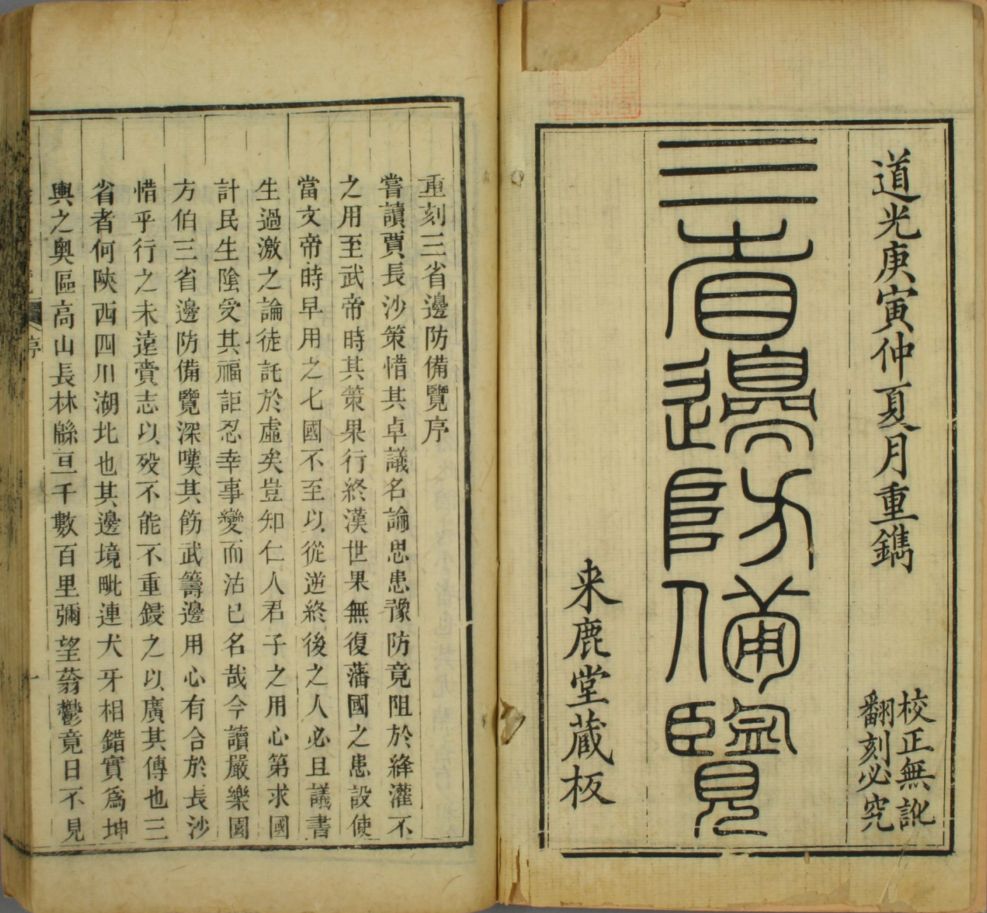 道光庚寅仲夏月重鐫
校正無訛
翻刻必究
三省邊防備覽
来鹿堂藏板
重刻三省邊防備覽序
嘗讀賈長沙策惜其卓議名論思患豫防竟阻於絳灌不
之用至武帝時其策果行終漢世果無復藩國之患設使
當文帝時早用之七國不至以從逆終後之人必且議書
生過激之論徒託於虛矣豈知仁人君子之用心第求國
計民生陰受其福詎忍幸事變而沽已名哉今讀嚴樂園
方伯三省邊防備覽深嘆其飭武籌邊用心有合於長沙
惜乎行之未遠賫志以歿不能不重鋟之以廣其傳也三
省者何陝西四川湖北也其邊境毗連犬牙相錯實爲坤
輿之奧區高山長林緜亘千數百里彌望蓊鬱竟日不見
序